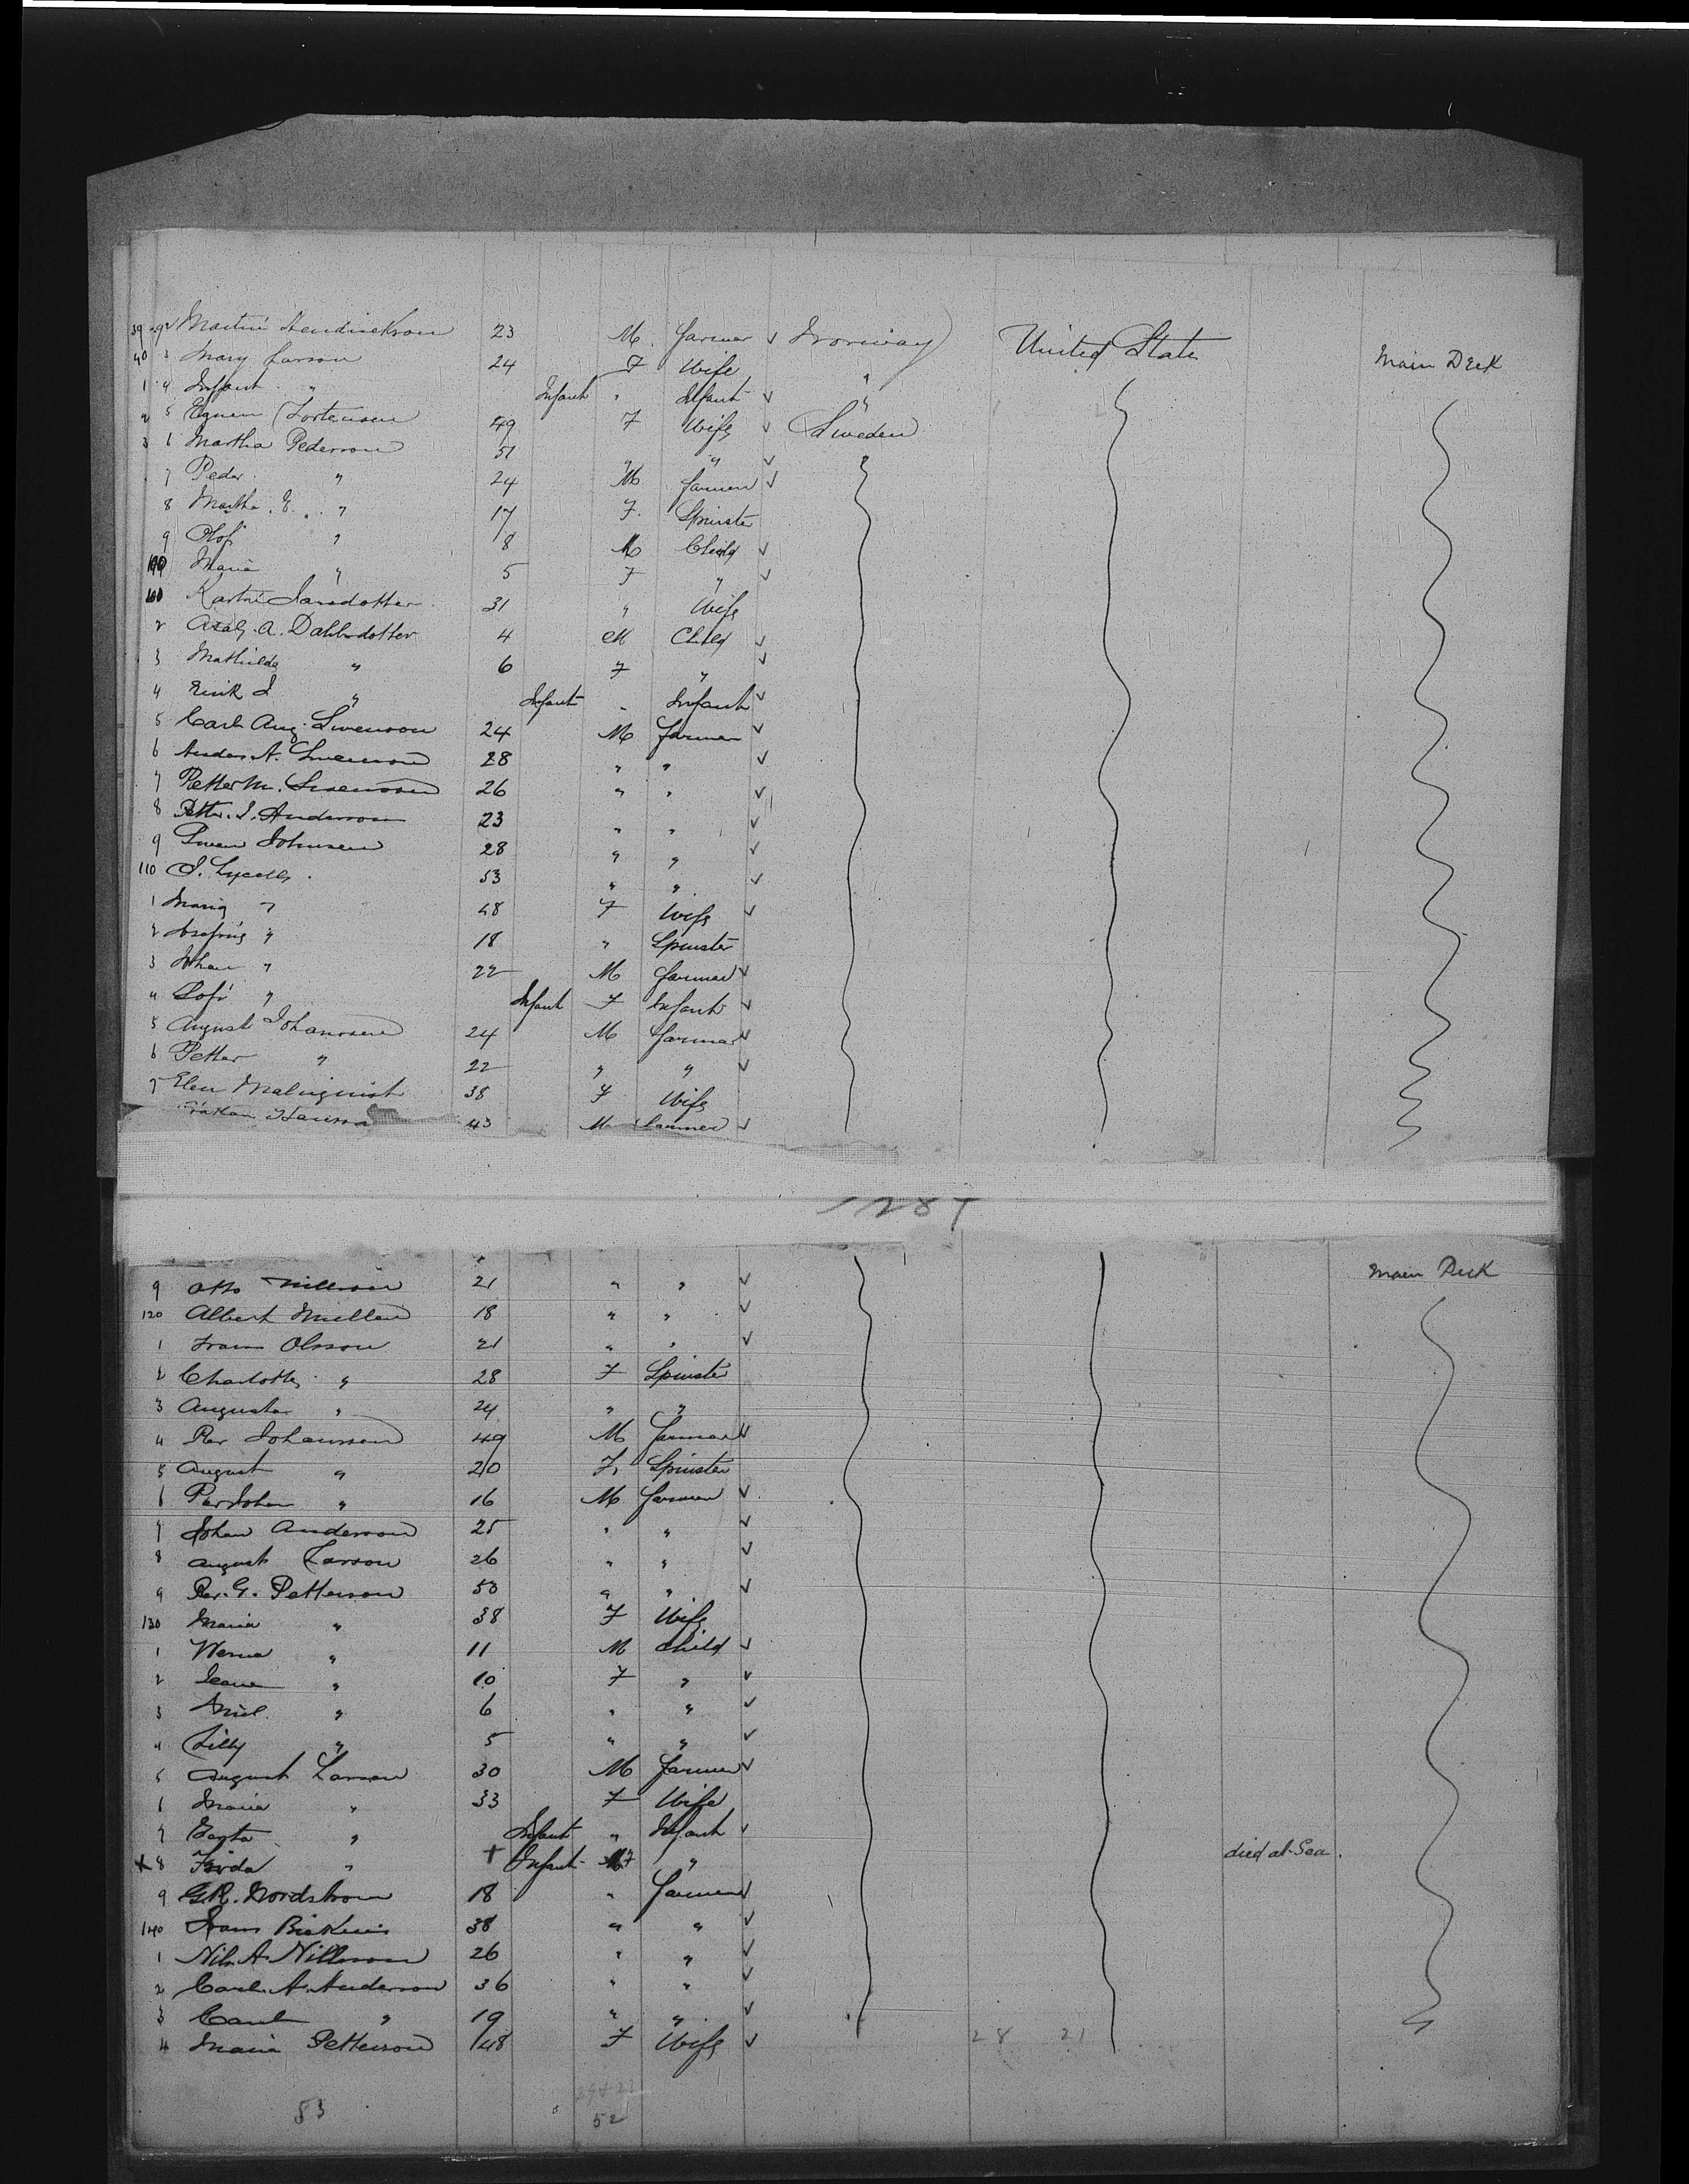 39 92 Martin Hendrickson 23 M. farmer ✓ Norway United State Main Deck
40 3 Mary Larson 24 F Wife "
1 4 Infant " Infant " Infant ✓ "
2 5 Tortensen 49 F Wife ✓ Sweden
3 6 Martha Pederson 51 " " ✓
7 Peder " 24 M farmer ✓
8 Martha E. " 17 F. Spinster
9 Olof " 8 M Child ✓
100 Maria " 5 F " ✓
Jansdotter 31 " Wife
2 A. Dahlsdotter 4 M Child ✓
3 Mathilda " 6 F " ✓
4 Erik " Infant " Infant ✓
5 Carl Aug. Swenson 24 M farmer ✓
6 Andes. A. Swenson 28 " " ✓
7 Petter M. Swenson 26 " " ✓
8 Petter. J. Anderson 23 " " ✓
9 Swen Johnsen 28 " " ✓
110 53 " " ✓
1 Maria " 48 F Wife ✓
2 " 18 " Spinster
3 Johan " 22 M farmer ✓
4 Sofi " Infant F Infant ✓
5 August Johanssen 24 M farmer ✓
6 Petter " 22 " " ✓
7 Elen Malmquist 38 F Wife
Hakan 43 M farmer ✓
9 Otto Nillson 21 " " ✓ Main Deck
120 Albert Muller 18 " " ✓
1 Frans Olsson 21 " " ✓
2 Charlotte " 28 F Spinster
3 Augusta " 24 " "
4 Per Johansson 49 M farmer ✓
5 August " 20 F. Spinster
6 Per Johan " 16 M farmer ✓
7 Johan Anderson 25 " " ✓
8 August Larson 26 " " ✓
9 Per. G. Petterson 50 " " ✓
130 Maria " 38 F Wife
1 Werna " 11 M Child ✓
2 " 10 F " ✓
3 " 6 " " ✓
4 Lilly " 5 " " ✓
5 August Larson 30 M farmer ✓
6 Maria " 33 F Wife
7 " Infant " Infant ✓
X 8 Frida " + Infant F " died at Sea.
9 G.R. Nordstrom 18 " farmer ✓
140 Frans 38 " " ✓
1 Nils A. Nillsson 26 " " ✓
2 Carl. A. Anderson 36 " " ✓
3 Carl " 19 " " ✓
4 Maria Petterson 48 F Wife ✓ 28 21
53 52